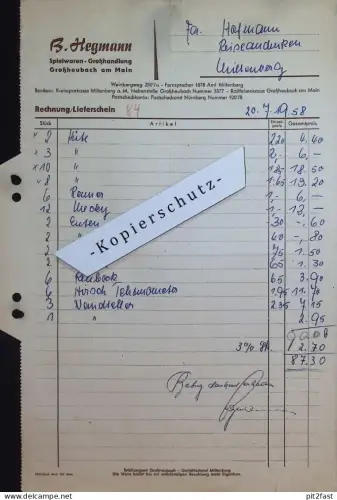 B. Hegmann
Spielwaren - Großhandlung
Großheubach am Main
Fa. Hofmann
Reiseandenken
Miltenberg
Weinbergweg 250⅐ - Fernsprecher 1878 Amt Miltenberg
Banken: Kreissparkasse Miltenberg a. M. Nebenstelle Großheubach Nummer - Raiffeisenkasse Großheubach am Main
Postscheckkonto: Postscheckamt Nürnberg Nummer 92078
Rechnung/Lieferschein 84 20. 7. 1958
Stück Artikel Einzelpreis Gesamtpreis
x 2 Hüte 2.20 4.40
x 3 " 2,- 6,-
x 10 " 18.50
x 8 " 1.65 13.20
6 1.- 6,-
12 1,- 12,-
2 Enten -30 -.60
2 " -40 -.80
2 75 1.50
2 65 1.30
6 65 3.90
6 Hirsch 1.95 11.70
3 Wandteller
1 " 2.95
90.08
3% Sk. 2.70
87.30
-Kopierschutz-
Betrag dankend erhalten
Erfüllungsort Großheubach - Gerichtsstand Miltenberg
Die Ware bleibt bis zur vollständigen Bezahlung mein Eigentum.
pit2fast